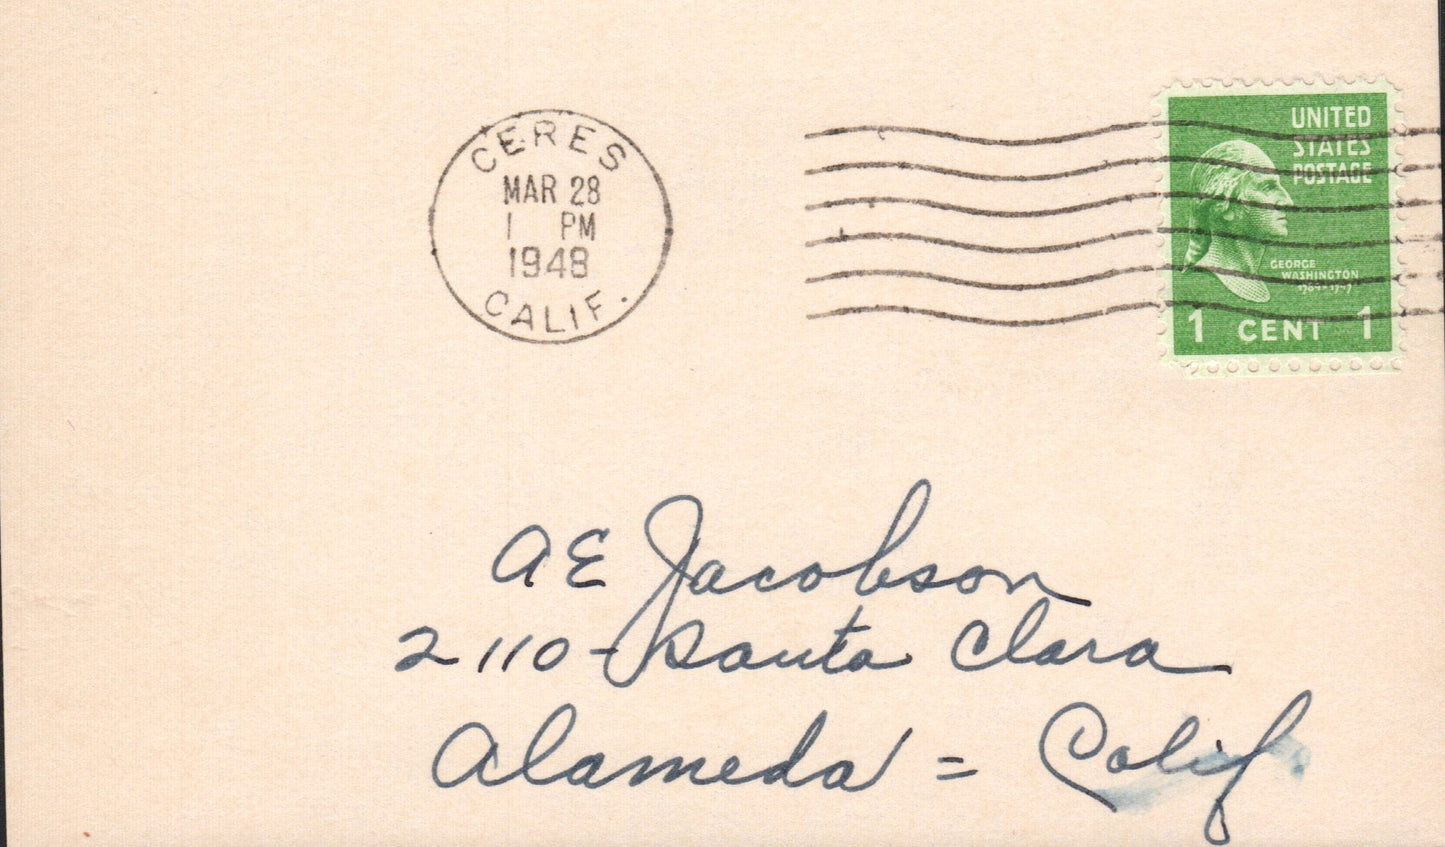 CERES
MAR 28
1 PM
1948
CALIF.
UNITED
STATES
POSTAGE
GEORGE
WASHINGTON
1 CENT 1
A E Jacobson
2110 - Santa Clara
Alameda = Calif